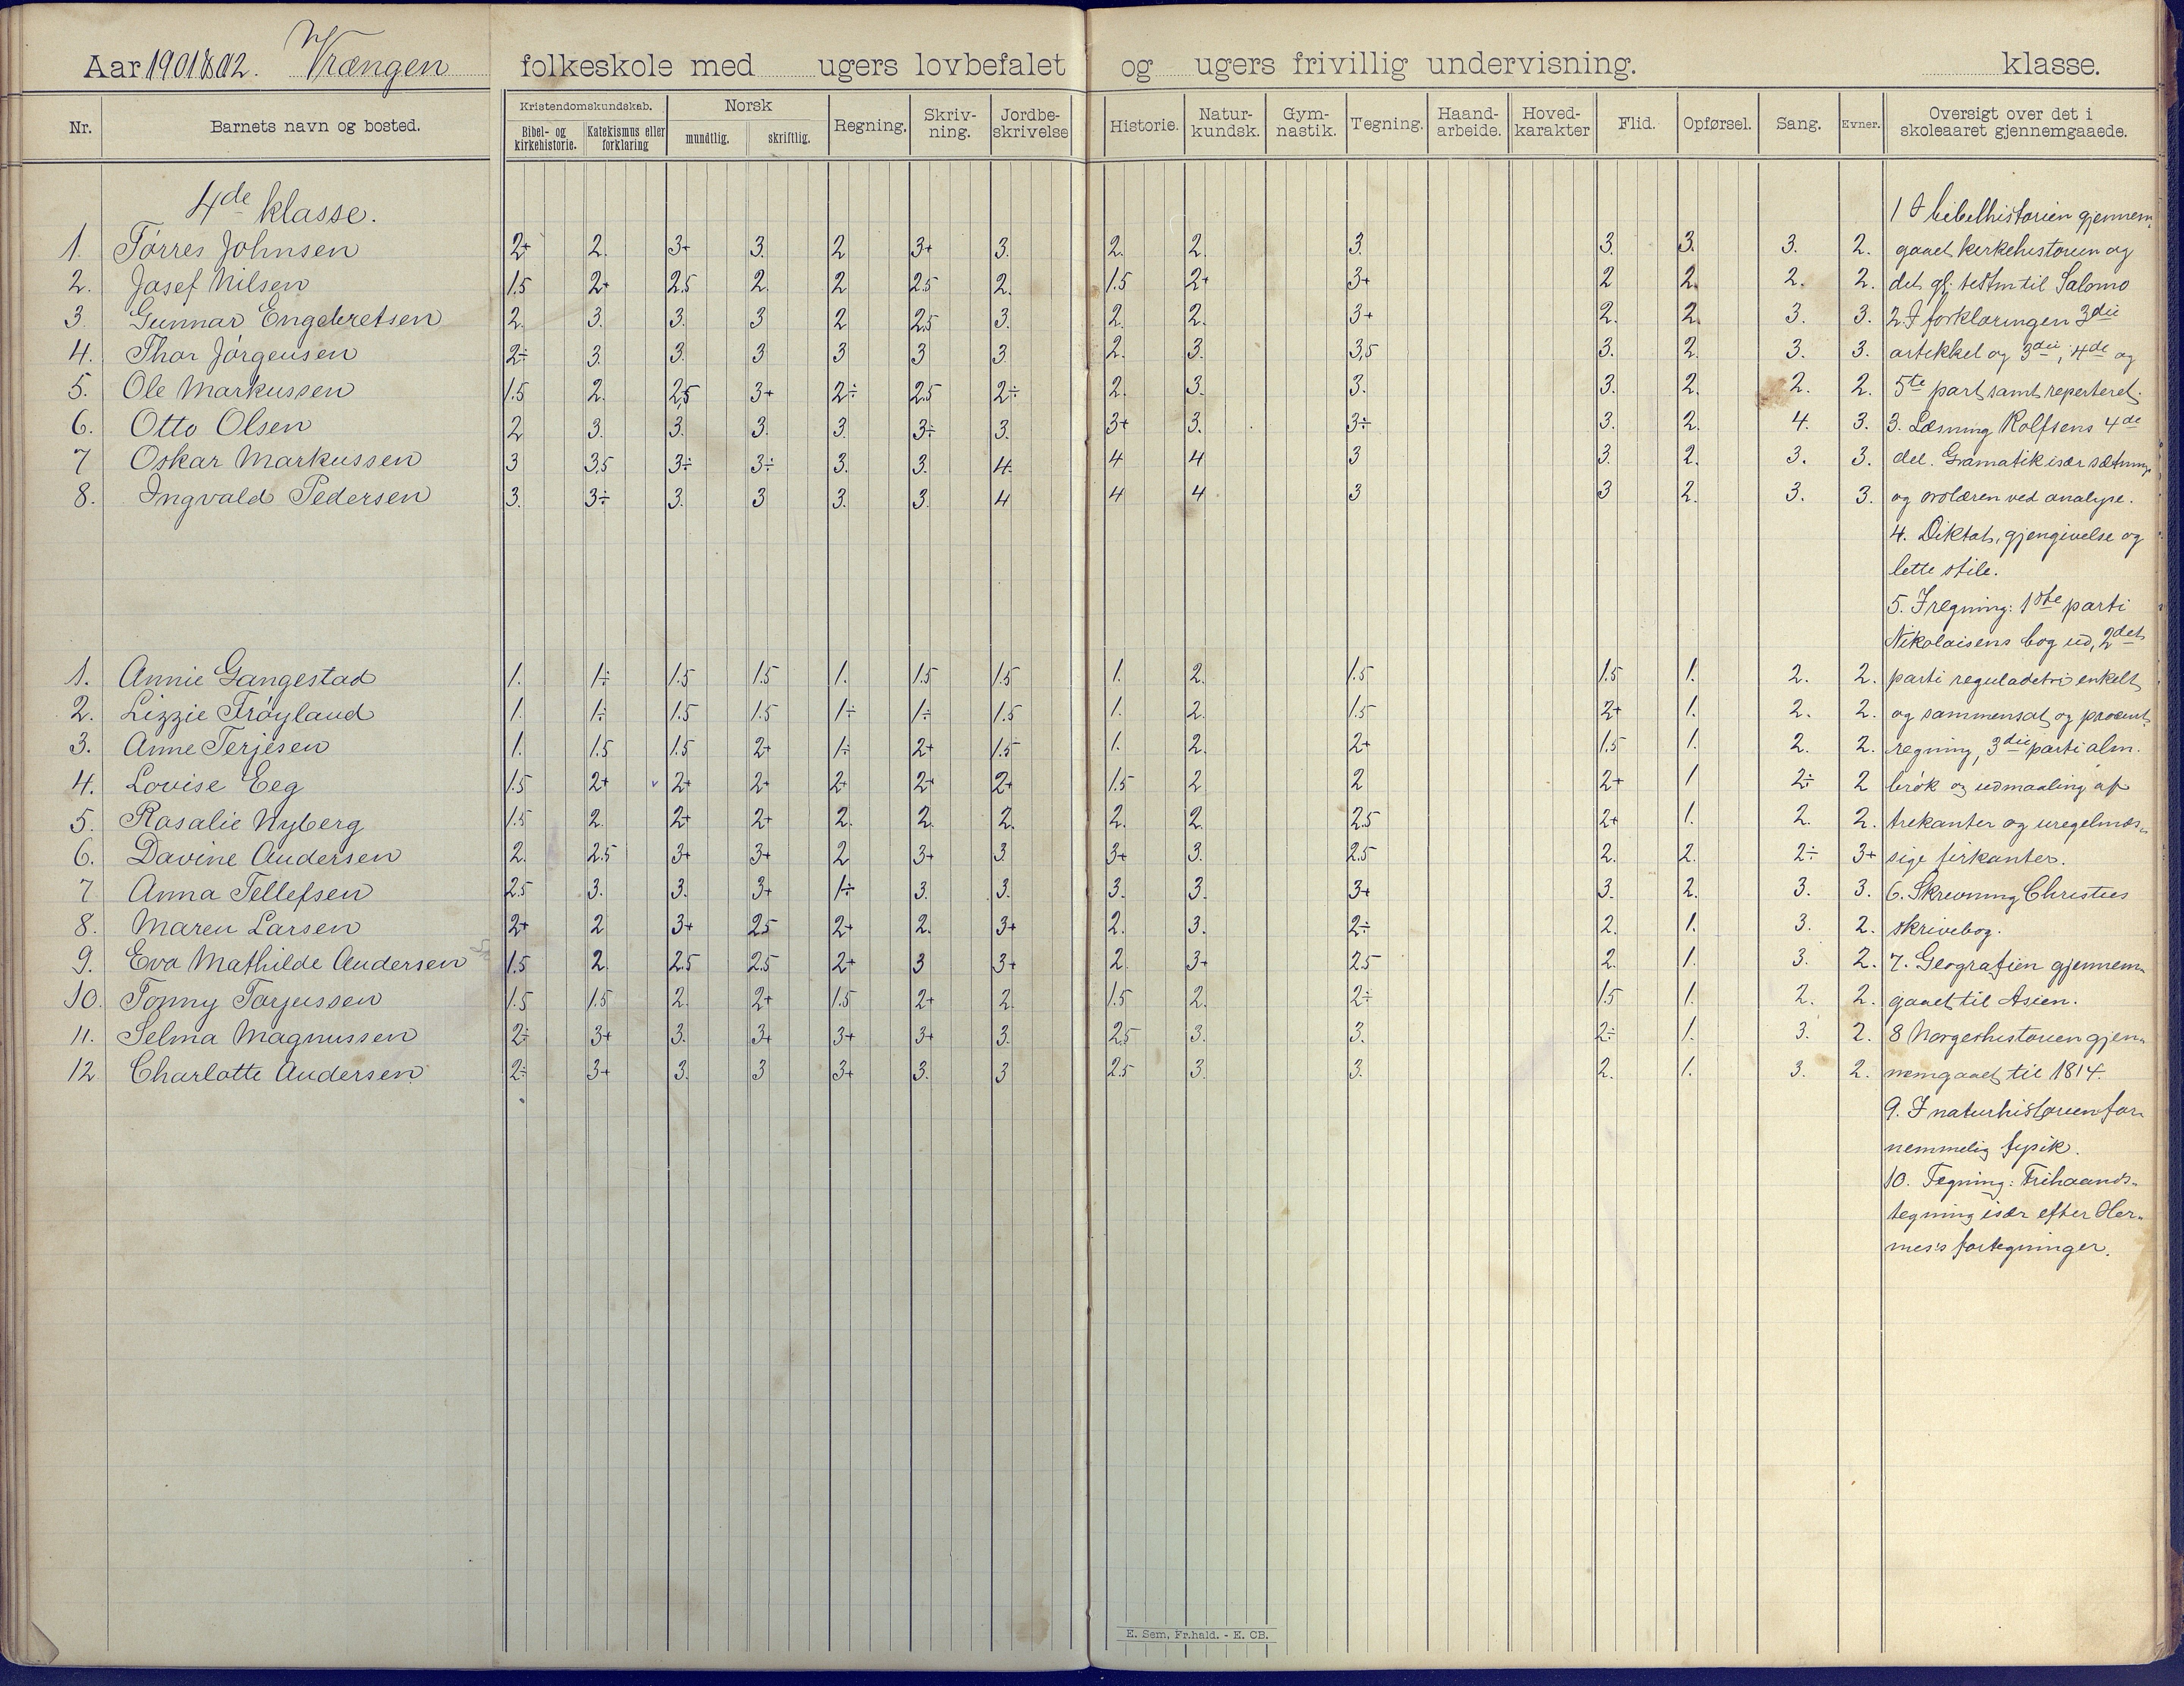 Aar 1901 1802. Vrængen folkeskole med ugers lovbefalet og ugers frivillig undervisning. klasse.
Nr. Barnets navn og bosted. Kristendomskundskab. Bibel- og kirkehistorie. Katekismus eller forklaring Norsk mundtlig. skriftlig. Regning. Skriv-ning. Jordbe-skrivelse Historie. Natur-kundsk. Gym-nastik. Tegning. Haand-arbeide. Hoved-karakter Flid. Opførsel. Sang. Evner. Oversigt over det i skoleaaret gjennemgaaede.
4de klasse. 1 I bibelhistorien gjennem-
1. Tørres Johnsen 2+ 2. 3+ 3. 2 3+ 3. 2. 2. 3. 3. 3. 3. 2. gaaet kirkehistorien og
2. Josef Nilsen 1.5 2+ 2.5 2. 2 2.5 2. 1.5 2+ 3+ 2 2. 2. 2. det gl. testm til Salomo
3. Gunnar Engebretsen 2. 3. 3. 3 2 2.5 3. 2. 2. 3+ 2. 2. 3. 3. 2. I forklaringen 3die
4. Thor Jørgensen 2÷ 3. 3. 3 3 3 3. 2. 3. 3,5 3. 2. 3. 3. artikkel og 3die, 4de og
5. Ole Markussen 1.5 2. 2,5 3+ 2÷ 2.5 2÷ 2. 3. 3. 3. 2. 2. 2. 5te part samt reperteret.
6. Otto Olsen 2 3. 3. 3. 3. 3÷ 3. 3+ 3. 3÷ 3. 2. 4. 3. 3. Læsning Rolfsens 4de
7 Oskar Markussen 3 3.5 3÷ 3÷ 3. 3. 4. 4 4 3 3. 2. 3. 3. del. Gramatik især sætnings
8. Ingvald Pedersen 3. 3÷ 3. 3 3. 3. 4 4 4 3 3 2. 3. 3. og ordlæren ved analyse.
4. Diktat, gjengivelse og
lette stile.
5. I regning: 1ste parti
Nikolaisens bog ud, 2det
1. Annie Gangestad 1. 1÷ 1.5 1.5 1. 1.5 1.5 1. 2. 1.5 1.5 1. 2. 2. parti reguladetri enkelt
2. Lizzie Frøyland 1. 1÷ 1.5 1.5 1÷ 1÷ 1.5 1. 2. 1.5 2+ 1. 2. 2. og sammensat og procent-
3. Anne Terjesen 1. 1.5 1.5 2+ 1÷ 2+ 1.5 1. 2. 2+ 1.5 1. 2. 2. regning, 3die parti alm.
4. Lovise Eeg 1.5 2+ 2+ 2+ 2+ 2+ 2+ 1.5 2 2 2+ 1 2÷ 2 brøk og udmaaling af
5. Rosalie Nyberg 1.5 2. 2+ 2+ 2. 2. 2. 2. 2. 2.5 2+ 1. 2. 2. trekanter og uregelmæs-
6. Davine Andersen 2. 2.5 3+ 3+ 2 3+ 3. 3+ 3. 2.5 2. 2. 2÷ 3+ sige firkanter.
7 Anna Tellefsen 2.5 3. 3. 3+ 1÷ 3. 3. 3. 3. 3+ 3. 2. 3. 3. 6. Skrivning Christies
8. Maren Larsen 2+ 2 3+ 2.5 2+ 2. 3+ 2. 3. 2÷ 2. 1. 3. 2. skrivebog.
9. Eva Mathilde Andersen 1.5 2. 2.5 2.5 2+ 3 3+ 2. 3+ 2.5 2. 1. 3. 2. 7. Geografien gjennem-
10. Tomny Tarjussen 1.5 1.5 2. 2+ 1.5 2+ 2. 1.5 2. 2÷ 1.5 1. 2. 2. gaaet til Asien.
11. Selma Magnussen 2÷ 3+ 3. 3+ 3+ 3+ 3. 2.5 3. 3. 2÷ 1. 3. 2. 8 Norgeshistorien gjen-
12 Charlotte Andersen 2÷ 3+ 3. 3 3+ 3. 3 2.5 3. 3. 2. 1. 3. 2. nemgaaet til 1814.
9. I naturhistorien for-
nemmelig fysik.
10. Tegning: Frihaands-
tegning især efter Her-
mes's fortegninger.
E. Sem, Fr.hald. - E. CB.